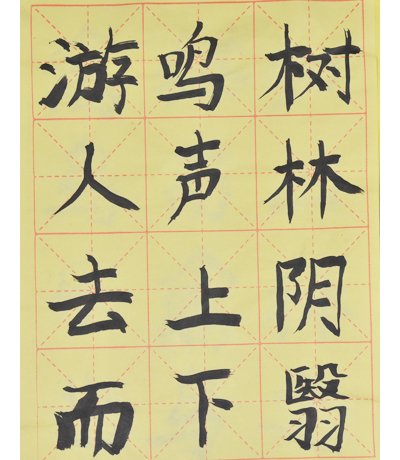 树林阴翳
鸣声上下
游人去而